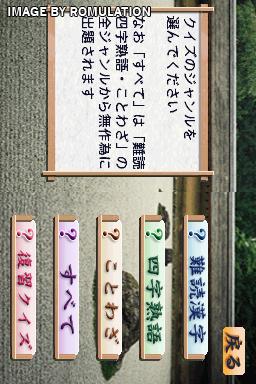 IMAGE BY ROMULATION
クイズのジャンルを
選んでください
なお「すべて」は「難読
四字熟語・ことわざ」の
全ジャンルから無作為に
出題されます
戻る
?難読漢字
?四字熟語
?ことわざ
?すべて
?復習クイズ